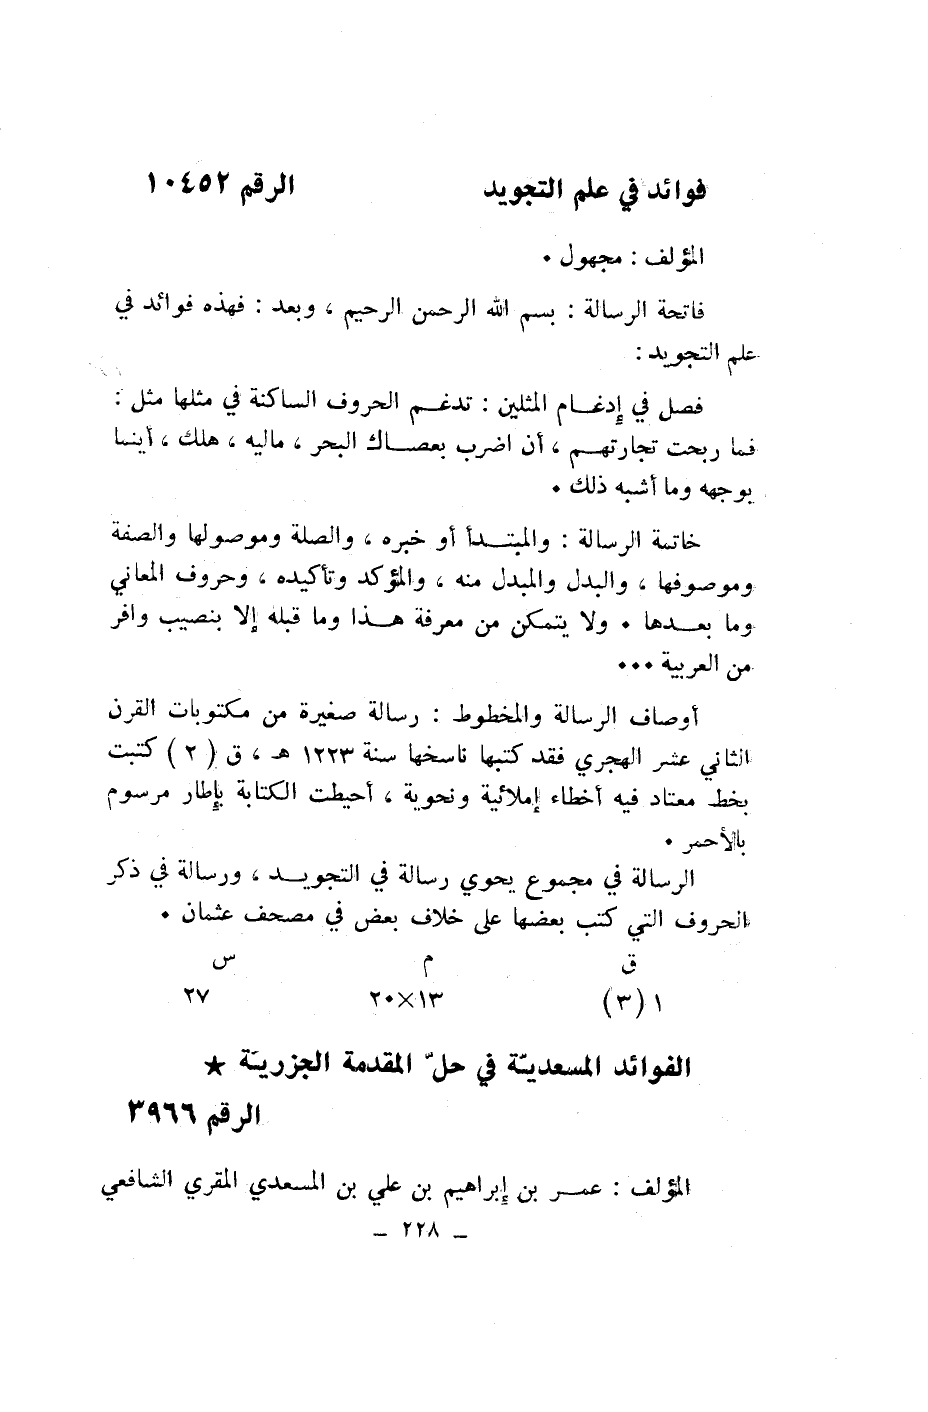 فوائد في علم التجويد الرقم ١٠٤٥٢
المؤلف : مجهول ٠
فاتحة الرسالة : بسم الله الرحمن الرحيم ، وبعد : فهذه فوائد في
علم التجويد :
فصل في إدغـــام المثلين : تدغـــم الحروف الساكنة في مثلها مثل :
فما ربحت تجارتهـــم ، أن اضرب بعصـــاك البحر ، ماليه ، هلك ، أينما
يوجهه وما أشبه ذلك ٠
خاتمة الرسالة : والمبتـــدأ أو خبره ، والصلة وموصولها والصفة
وموصوفها ، والبدل والمبدل منه ، والمؤكد وتأكيده ، وحروف المعاني
وما بعـــدها ٠ ولا يتمكن من معرفة هـــذا وما قبله إلا بنصيب وافر
من العربية ٠٠٠
أوصاف الرسالة والمخطوط : رسالة صغيرة من مكتوبات القرن
الثاني عشر الهجري فقد كتبها ناسخها سنة ١٢٢٣ هـ ، ق ( ٢ ) كتبت
بخط معتاد فيه أخطاء إملائية ونحوية ، أحيطت الكتابة بإطار مرسوم
بالأحمر ٠
الرسالة في مجموع يحوي رسالة في التجويـــد ، ورسالة في ذكر
الحروف التي كتب بعضها على خلاف بعض في مصحف عثمان ٠
ق م س
١ (٣) ١٣×٢٠ ٢٧
الفوائد المسعديّة في حلّ المقدمة الجزريّة ★
الرقم ٣٩٦٦
المؤلف : عمـــر بن إبراهيم بن علي بن المسعدي المقري الشافعي
– ٢٢٨ –